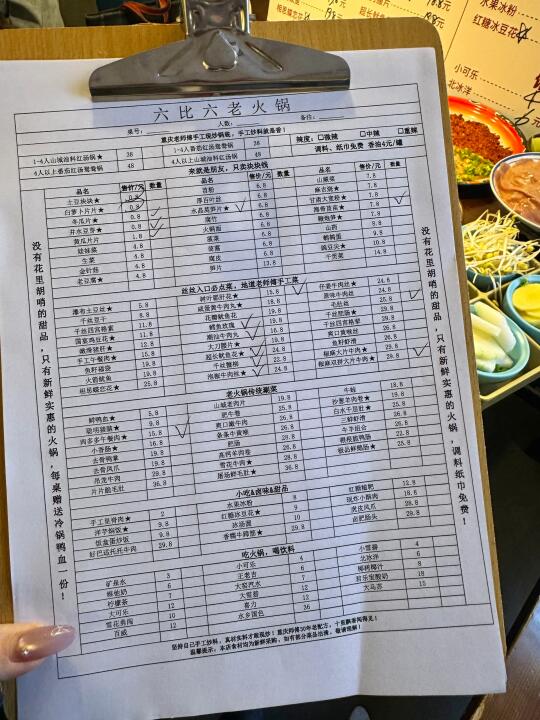 六比六老火锅
桌号： 人数： 备注：
重庆老师傅手工现炒锅底，手工炒料就是香！
1-4人山城油料红汤锅★ 38 1-4人番茄红汤鸳鸯锅 48 辣度：□微辣 □中辣 □重辣
4人以上番茄红汤鸳鸯锅 48 4人以上山城油料红汤锅 48 调料、纸巾免费 香油4元/罐
来就是朋友，只卖块块钱
品名 售价/元 数量 品名 售价/元 数量 品名 售价/元 数量
土豆块块★ 0.8
白萝卜片片★ 0.8
冬瓜片★ 0.8
井水豆芽★ 0.8
黄瓜片片 1.8
娃娃菜 4.8
生菜 4.8
金针菇 4.8
老豆腐★ 4.8
苕粉 6.8
厚百叶丝 6.8
水晶莴笋片★ 6.8
腐竹 6.8
火锅面 6.8
菠菜 6.8
腐皮 6.8
笋片 13.8
山城菜 7.8
麻衣烧★ 7.8
甘肃大宽粉★ 7.8
海带苗苗★ 7.8
鞭炮笋★
山药 8.8
鹌鹑蛋 9.8
豌豆尖★ 10.8
干贡菜 14.8
丝丝入口必点菜，地道老师傅手工菜
品名 售价/元 数量 品名 售价/元 数量 品名 售价/元 数量
潍布土豆丝★ 5.8
千丝豆干 8.8
千丝四宫格薯 11.8
国宴鸡豆花★ 11.8
嫩滑猪肝★ 12.8
手工午餐肉★ 15.8
鱼籽福袋 19.8
火箭鱿鱼 19.8
相思蝶恋花★ 25.8
树叶郡肝花★ 15.8
咸蛋黄牛肉丸 18.8
花瓣鱿鱼花
鳕鱼玫瑰
潮汕牛肉丸
大刀腰片★
超长鱿鱼花★
千丝蟹柳 22.8
泡椒牛肉丝★ 24.8
仔姜牛肉丝★ 24.8
原味牛肉丝 24.8
毛肚丝 25.8
千丝肥肠★
千丝四宫格掌
爽口黄喉丝
鱼籽虾滑
麻椒大片牛肉★
麻椒双拼大片牛肉★ 29.8
老火锅传统涮菜
鲜鸭血★ 5.8
聪明猪脑★ 9.8
肉多多午餐肉★ 15.8
小香肠★ 16.8
去骨鸭掌 19.8
去骨凤爪 19.8
吊龙牛肉 29.8
片片脆毛肚 36.8
山城老肉片 19.8
肥牛卷 25.8
爽口嫩牛肉 26.8
条条牛黄喉 26.8
肥肠 28.8
高钙羊肉卷 28.8
雪花牛肉★ 28.8
屠场鲜毛肚★ 36.8
牛蛙 18.8
沙葱羊肉卷★ 25.8
白水千层肚★ 25.8
三鲜虾滑 26.8
牛羊组合 28.8
根根脆鸭肠 22.8
极品鲜鹅肠★ 25.8
小吃&卤味&甜品
手工里脊肉★ 2
洋芋焖饭★ 9.8
饭盒蛋炒饭★ 9.8
好巴适托托牛肉 29.8
水果冰粉 8
红糖冰豆花★ 9
冰汤圆 10
香糯牛蹄筋★ 29.8
红糖糍粑 12.8
现炸小酥肉 18.8
虎皮凤爪 29.8
卤肥肠头 29.8
吃火锅，喝饮料
矿泉水 3
维他奶 6
柠檬茶 7
大可乐 12
雪花勇闯 10
百威 12
小可乐 4
王老吉 6
大窑汽水 7
大雪碧 12
喜力 12
水乡国色 36
小雪碧 4
北冰洋 6
椰树椰汁 8
君乐宝酸奶 18
大乌苏 15
坚持自己手工炒料，真材实料才敢现炒！重庆师傅30年老配方，十里飘香闻得见！
温馨提示：本店食材均为新鲜采购，如有部分菜品估清，敬请理解！
没有花里胡哨的甜品，只有新鲜实惠的火锅，每桌赠送冷锅鸭血一份！
没有花里胡哨的甜品，只有新鲜实惠的火锅，调料纸巾免费！
水果冰粉
红糖冰豆花
小可乐
北冰洋
相思蝶恋花